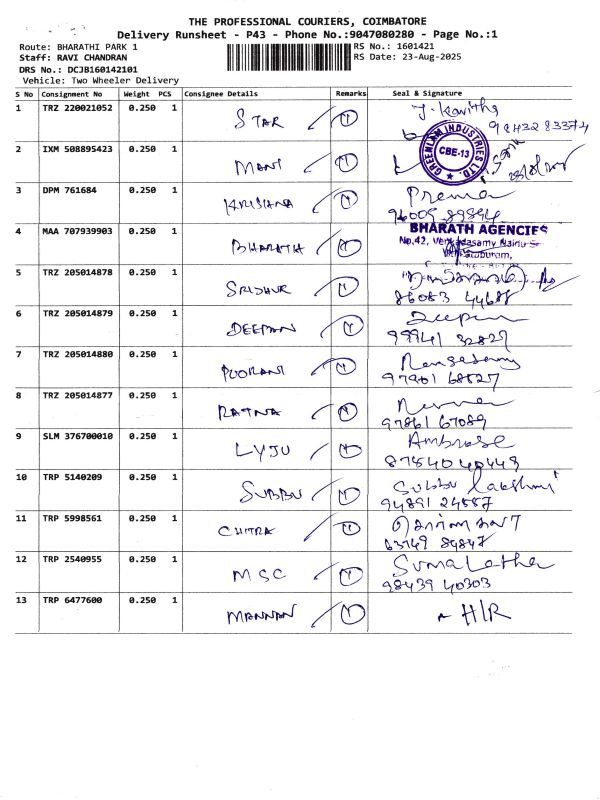 THE PROFESSIONAL COURIERS, COIMBATORE
Delivery Runsheet - P43 - Phone No.:9047080280 - Page No.:1
Route: BHARATHI PARK 1
RS No.: 1601421
Staff: RAVI CHANDRAN
RS Date: 23-Aug-2025
DRS No.: DCJB160142101
Vehicle: Two Wheeler Delivery
S No Consignment No Weight PCS Consignee Details Remarks Seal & Signature
1 TRZ 220021052 0.250 1 STAR J. Kavitha
98432 83374
2 IXM 508895423 0.250 1 MANI GREENLAM INDUSTRIES LTD. CBE-13
3 DPM 761684 0.250 1 KRISHNA Prema
96009 89894
4 MAA 707939903 0.250 1 BHARATH BHARATH AGENCIES
No.42,
5 TRZ 205014878 0.250 1
86083 44688
6 TRZ 205014879 0.250 1 DEEPAN Deepan
99941 32827
7 TRZ 205014880 0.250 1 POORANI Rangasamy
97901 68527
8 TRZ 205014877 0.250 1 RATNA
97861 67089
9 SLM 376700010 0.250 1 LYJU Ambrose
87540 40448
10 TRP 5140209 0.250 1 SUBBU Subbu lakshmi
94891 24887
11 TRP 5998561 0.250 1 CHITRA
63749 89847
12 TRP 2540955 0.250 1 MSC Suma Latha
98439 40303
13 TRP 6477600 0.250 1 MANNAN H/R